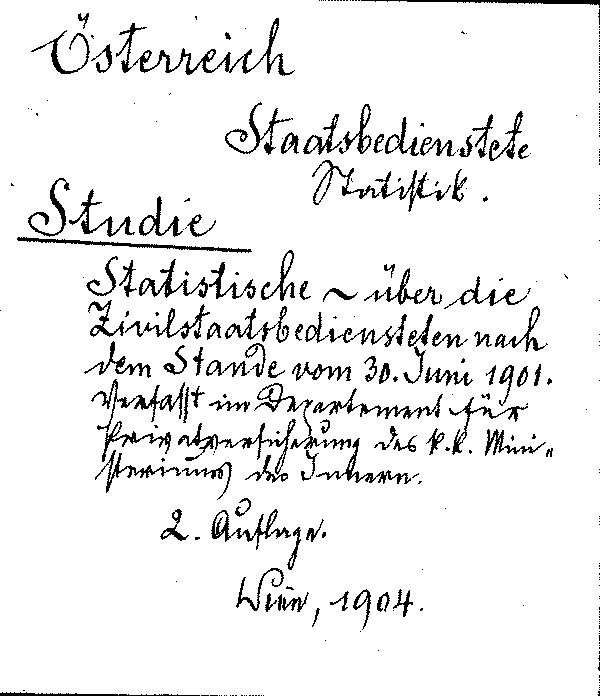 Österreich
Staatsbedienstete
Statistik.
Studie
Statistische ~ über die
Zivilstaatsbediensteten nach
dem Stande vom 30. Juni 1901.
Verfasst im Departement für
Privatversicherung des k. k. Mini-
steriums des Innern.
2. Auflage.
Wien, 1904.